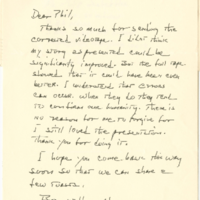 Dear Phil,
Thanks so much for sending the
corrected videotape. I didn't think
my story as presented could be
significantly improved. But the full tape
showed that it could have been even
better. I understand that errors
can occur. When they do they tend
to confirm our humanity. There is
no reason for me to forgive for
I still loved the presentation.
Thank you for doing it.
I hope you come back this way
soon so that we can share a
few